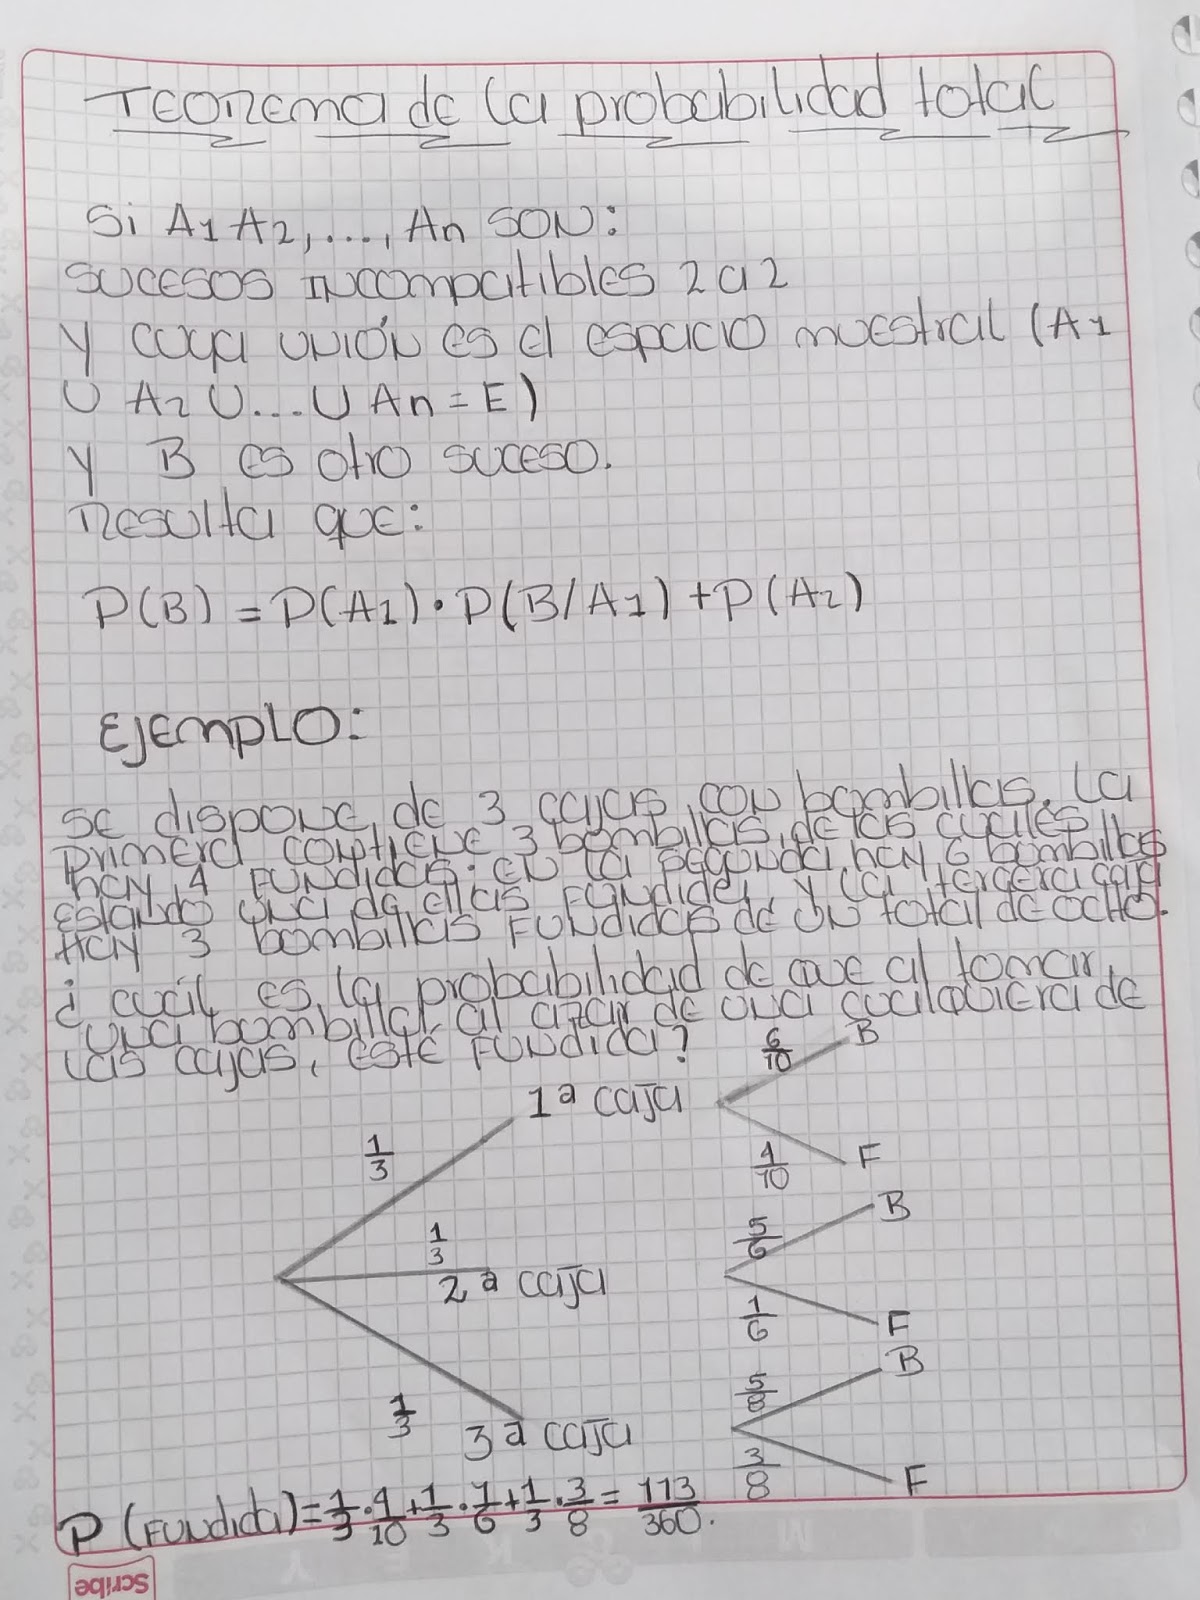 Teorema de la probabilidad total
Si A1 A2, ..., An son:
sucesos incompatibles 2 a 2
y cuya unión es el espacio muestral (A1
U A2 U... U An = E)
y B es otro suceso.
Resulta que:
P(B) = P(A1) • P(B/A1) + P(A2)
Ejemplo:
Se dispone de 3 cajas con bombillas. La
primera contiene 3 bombillas, de las cuales
hay 4 fundidas. En la segunda hay 6 bombillas
estando una de ellas fundida, y la tercera caja
hay 3 bombillas fundidas de un total de ocho.
¿cuál es la probabilidad de que al tomar
una bombilla, al azar de una cualquiera de
las cajas, esté fundida?
6/10 B
1ª caja
1/3
4/10 F
5/6 B
1/3
2ª caja
1/6 F
5/8 B
1/3
3ª caja
3/8 F
P (fundida) = 1/3 • 4/10 + 1/3 • 1/6 + 1/3 • 3/8 = 113/360.
Scribe